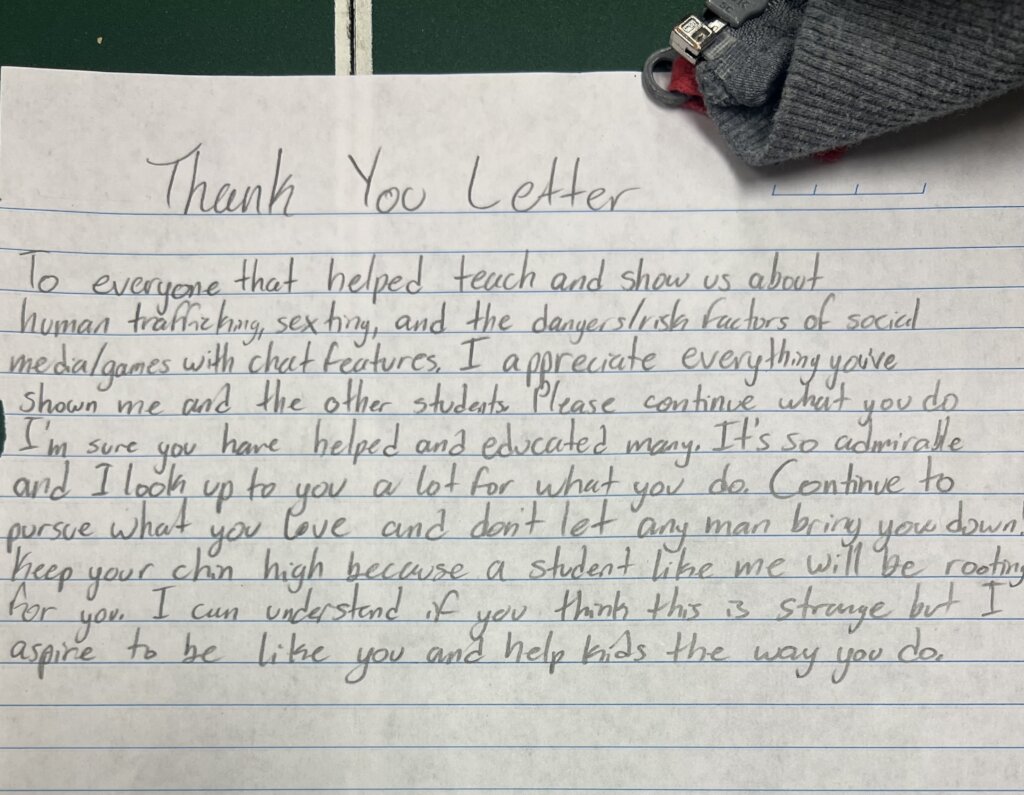 Thank You Letter
To everyone that helped teach and show us about
human trafficking, sexting, and the dangers/risk factors of social
media/games with chat features. I appreciate everything you've
shown me and the other students. Please continue what you do
I'm sure you have helped and educated many. It's so admirable
and I look up to you a lot for what you do. Continue to
pursue what you love and don't let any man bring you down!
Keep your chin high because a student like me will be rooting
for you. I can understand if you think this is strange but I
aspire to be like you and help kids the way you do.